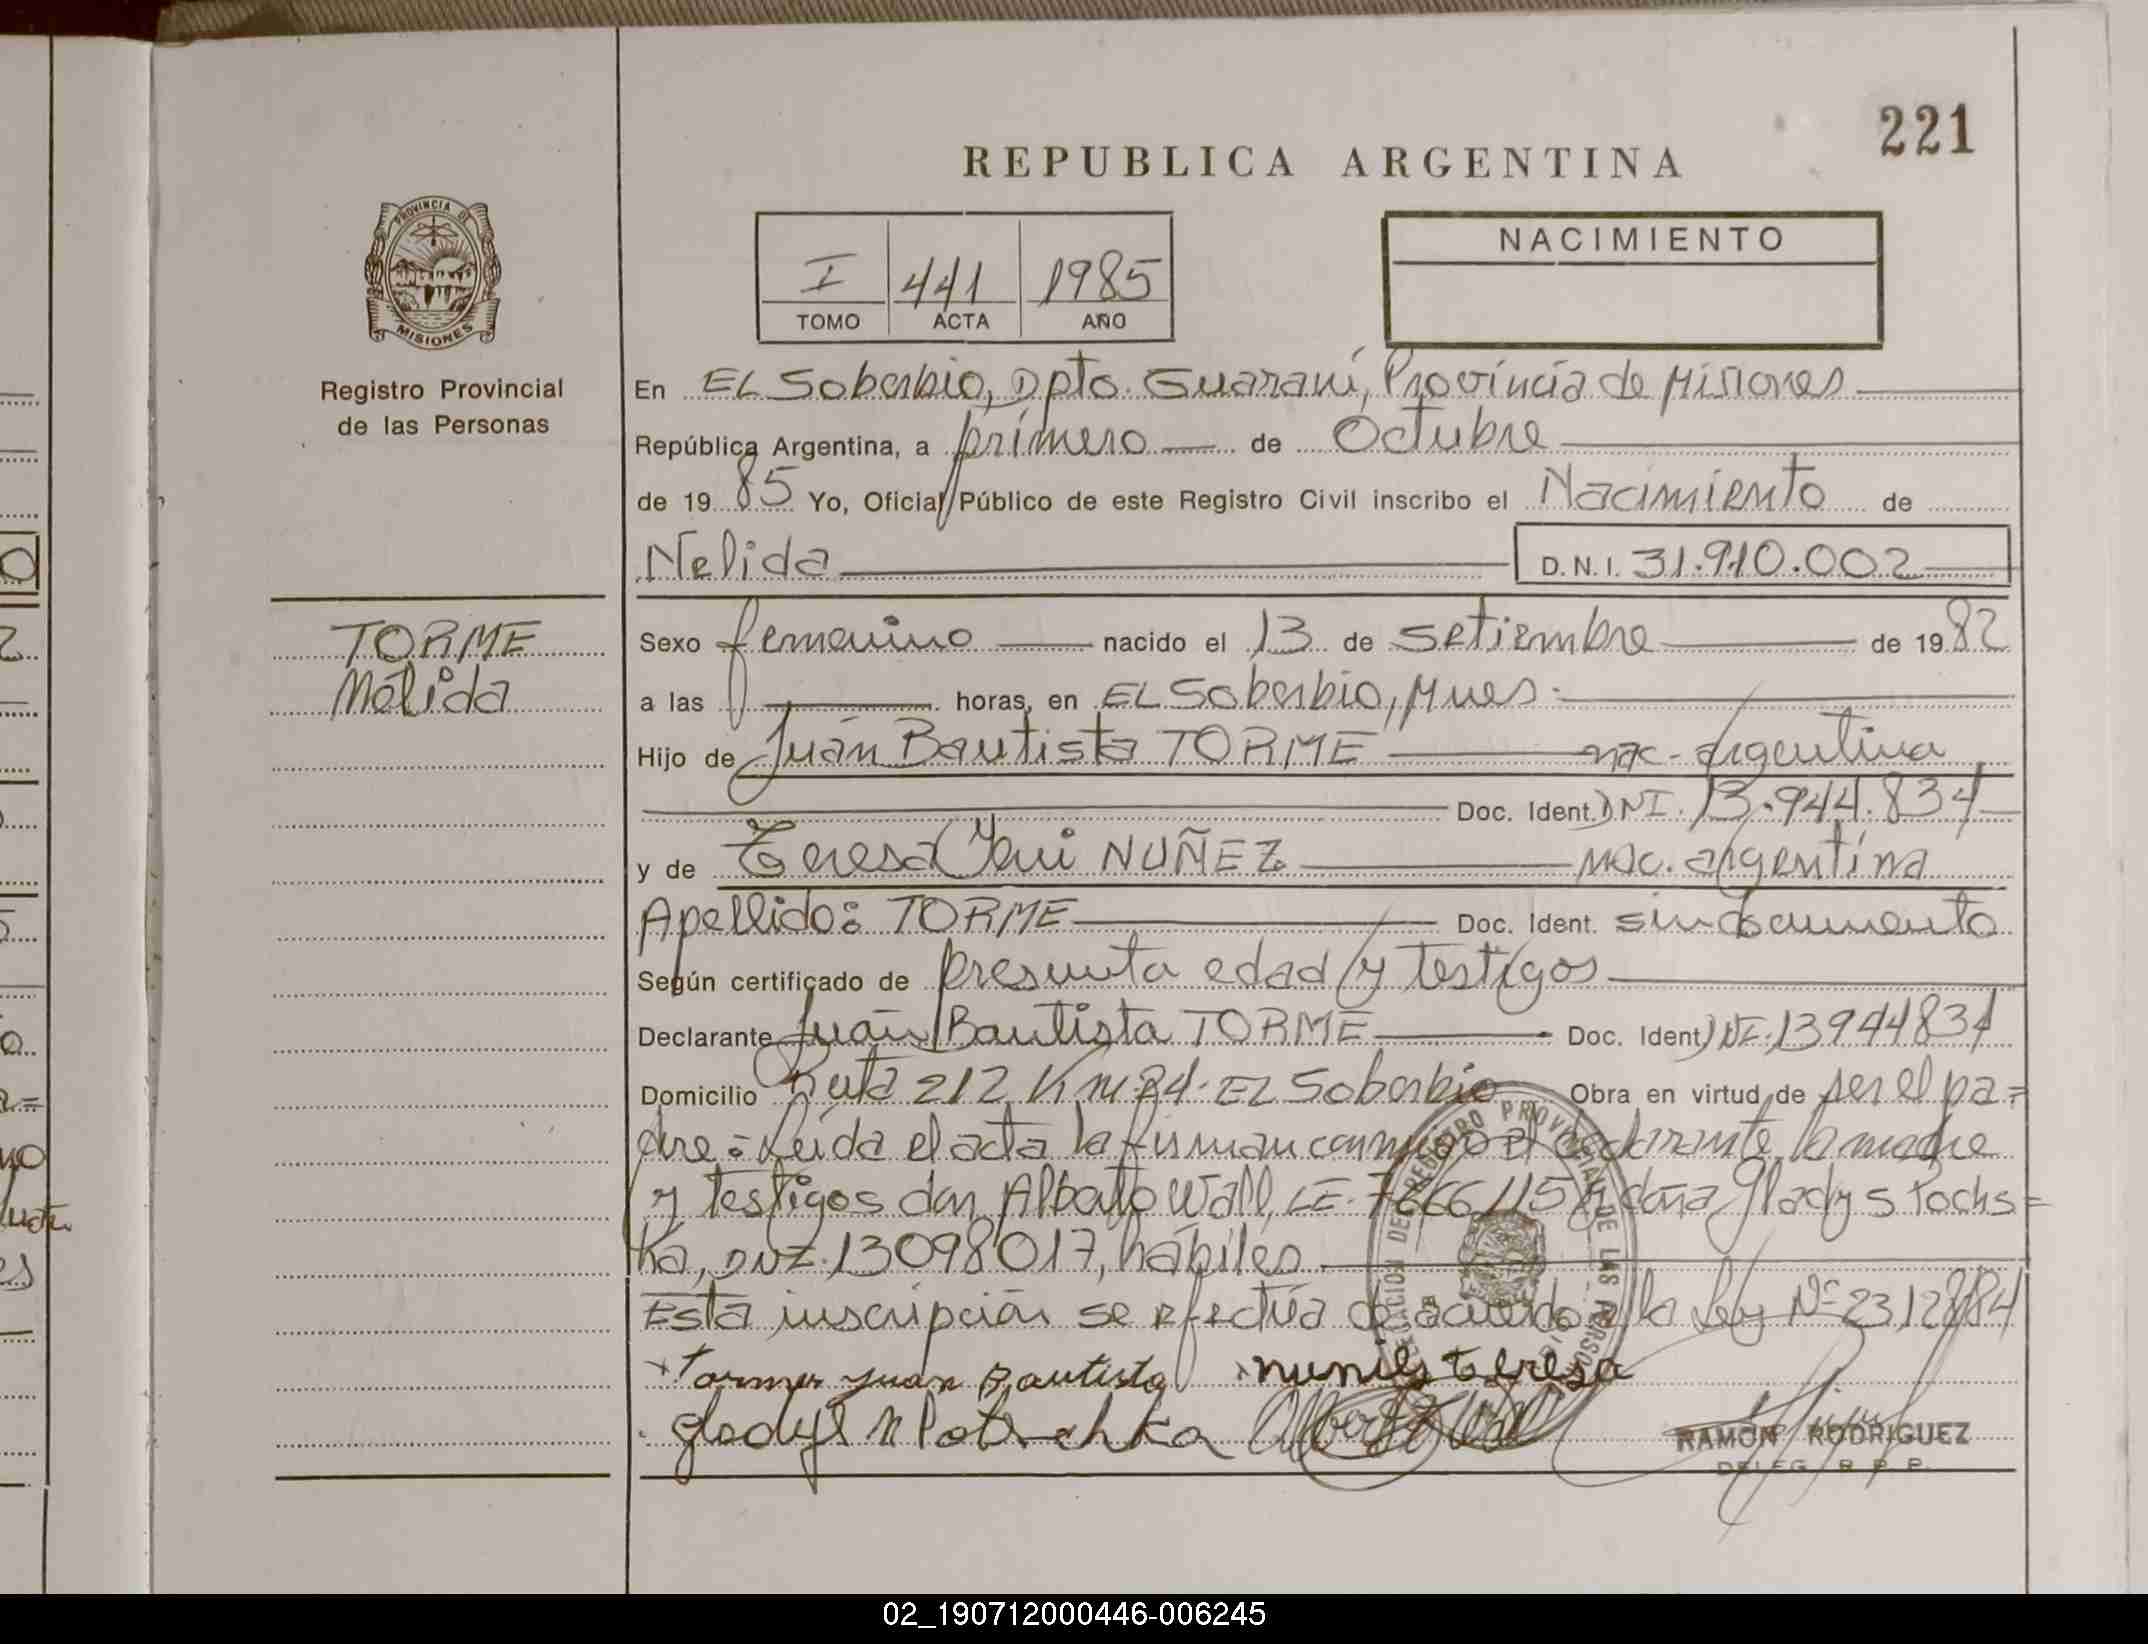 221
REPUBLICA ARGENTINA
PROVINCIA DE
MISIONES
Registro Provincial
de las Personas
I 441 1985
TOMO ACTA AÑO
NACIMIENTO
En EL Soberbio, Dpto. Guaraní, Provincia de Misiones
República Argentina, a primero de Octubre
de 19 85 Yo, Oficial Público de este Registro Civil inscribo el Nacimiento de
Nelida D.N.I. 31.910.002
TORME
Melida
Sexo femenino nacido el 13 de Setiembre de 19 82
a las horas, en EL Soberbio, Mnes.
Hijo de Juan Bautista TORME nac. argentina
Doc. Ident. DNI. 13.944.834
y de Teresa NUÑEZ nac. argentina
Apellido: TORME Doc. Ident. sin documento
Según certificado de presunta edad y testigos
Declarante Juan Bautista TORME Doc. Ident. DNI. 13944834
Domicilio Ruta 212 Km. 24. EL Soberbio Obra en virtud de ser el pa=
dre = Leida el acta la firman conmigo el declarante, la madre
y testigos don Alberto Wall, LE. y doña Gladys Pochs=
ka, DNI. 13098017, hábiles
Esta inscripción se efectúa de acuerdo a la Ley Nº 23128/84
Juan Bautista nuñes teresa
RAMON RODRIGUEZ
DELEG. R. P. P.
02_190712000446-006245